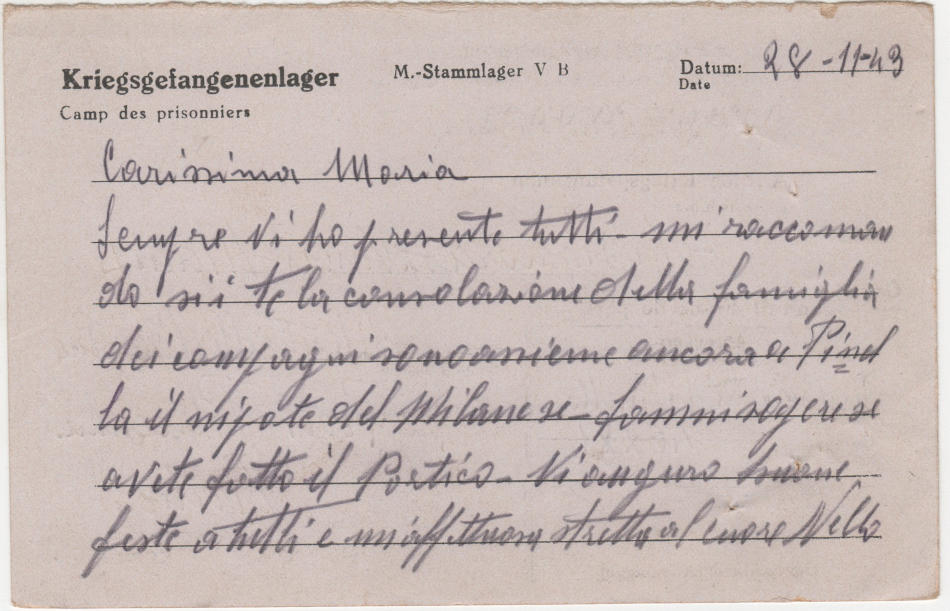 Kriegsgefangenenlager
M.-Stammlager V B
Datum: 28-11-43
Date
Camp des prisonniers
Carissima Maria
Sempre Vi ho presente tutti - mi raccoman
do sii te la consolazione della famiglia
dei compagni sono assieme ancora a Pinel
la il nipote del Milanese - fammi sapere se
avete fatto il Portico - Vi auguro buone
feste a tutti e un'affettuosa stretta al cuore Nello